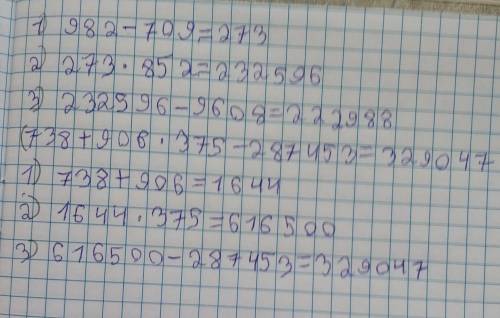 1) 982-709=273
2) 273·852=232596
3) 232596-9608=222988
(738+906·375-287453=329047
1) 738+906=1644
2) 1644·375=616500
3) 616500-287453=329047